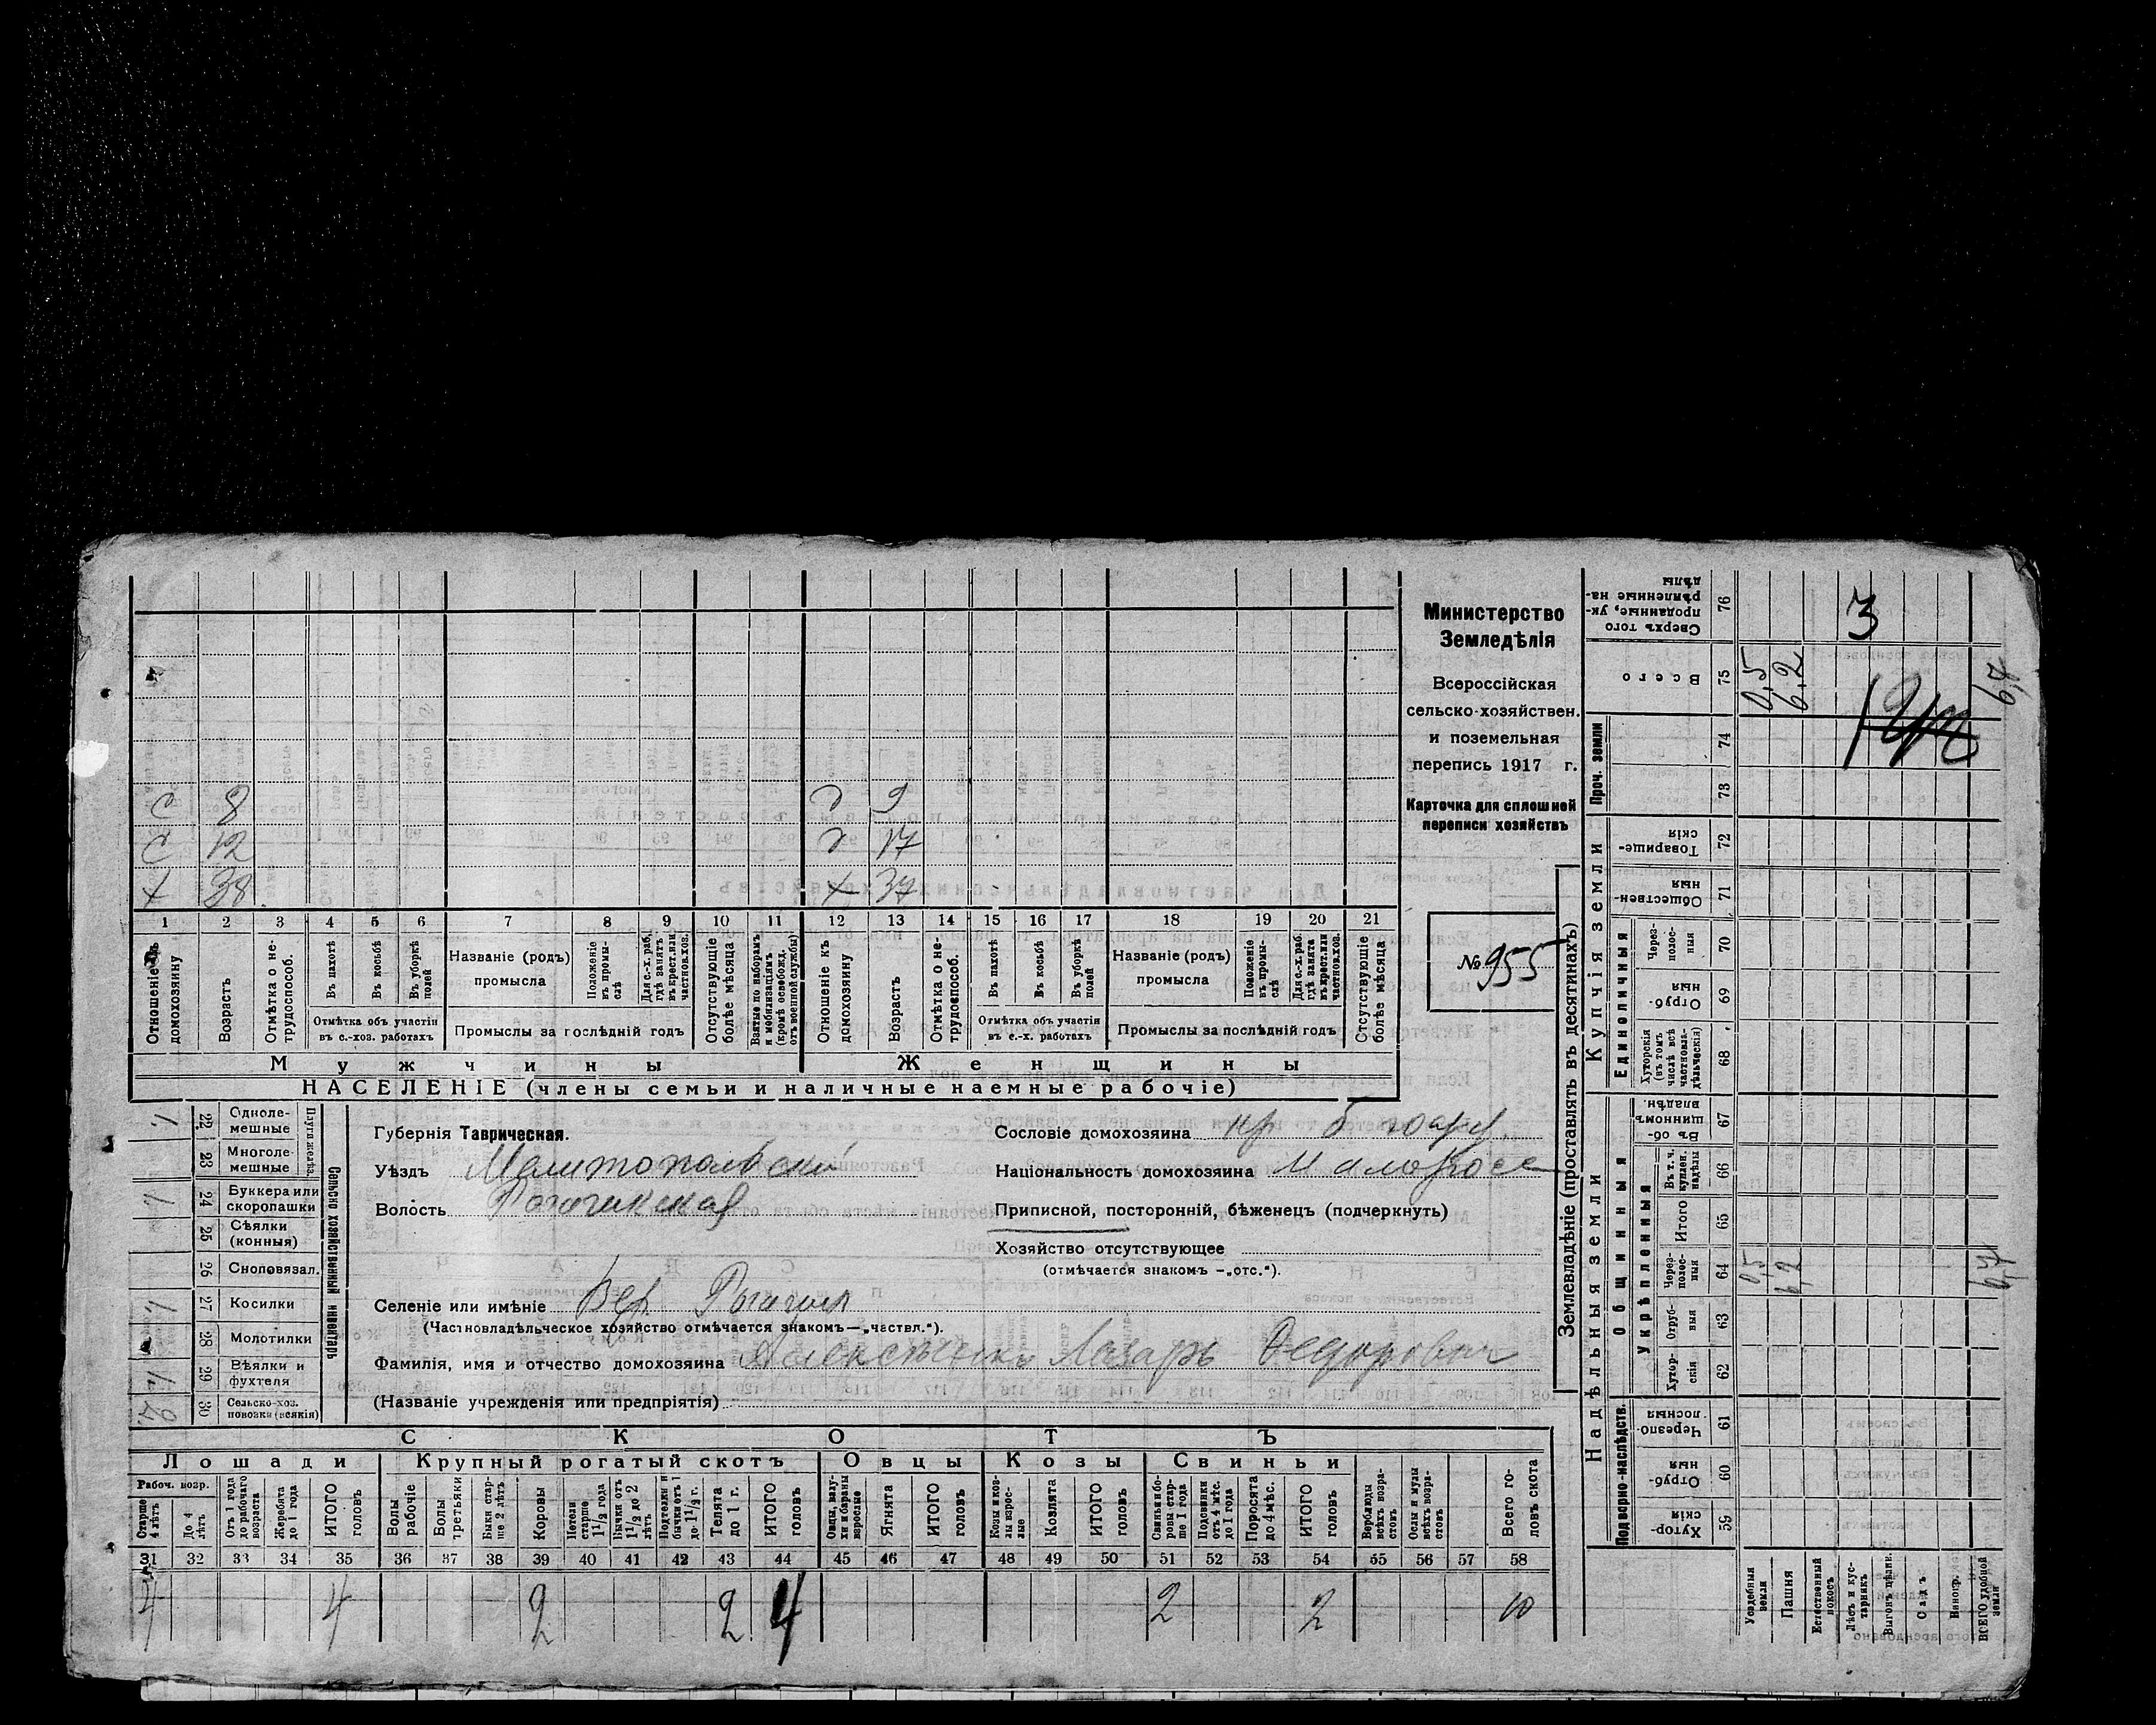 Министерство
Земледѣлія
Всероссійская
сельско-хозяйствен.
и поземельная
перепись 1917 г.
Карточка для сплошной
переписи хозяйствъ
№ 955
с 8 д 9
с 12 д 17
х 38 х 37
1 2 3 4 5 6 7 8 9 10 11 12 13 14 15 16 17 18 19 20 21
Отношеніе къ домохозяину
Возрастъ
Отмѣтка о нетрудоспособ.
Въ пахотѣ
Въ косьбѣ
Въ уборкѣ полей
Отмѣтка объ участіи
въ с.-хоз. работахъ
Названіе (родъ)
промысла
Положеніе въ промыслѣ
Для с.-х. раб. гдѣ занятъ въ крест. или частнов. хоз.
Промыслы за послѣдній годъ
Отсутствующіе болѣе мѣсяца
Взятые по наборамъ и мобилизаціямъ (кромѣ освобожд. отъ военной службы)
Отношеніе къ домохозяину
Возрастъ
Отмѣтка о нетрудоспособ.
Въ пахотѣ
Въ косьбѣ
Въ уборкѣ полей
Отмѣтка объ участіи
въ с.-х. работахъ
Названіе (родъ)
промысла
Положеніе въ промыслѣ
Для с.-х. раб. гдѣ занята въ крест. или частнов. хоз.
Промыслы за послѣдній годъ
Отсутствующіе болѣе мѣсяца
Мужчины Женщины
НАСЕЛЕНІЕ (члены семьи и наличные наемные рабочіе)
Сельско хозяйственный инвентарь
Плуги желѣз.
22 Одноле-
мешные
23 Многоле-
мешные
24 Буккера или
скоропашки
25 Сѣялки
(конныя)
26 Сноповязал.
27 Косилки
28 Молотилки
29 Вѣялки и
фухтеля
30 Сельско-хоз.
повозки (всякія)
Губернія Таврическая.
Уѣздъ Мелитопольскій
Волость Рогачикская
Сословіе домохозяина кр
Національность домохозяина Малоросс
Приписной, посторонній, бѣженецъ (подчеркнуть)
Хозяйство отсутствующее
(отмѣчается знакомъ —„отс.“).
Селеніе или имѣніе Вер. Рогачик
(Частновладѣльческое хозяйство отмѣчается знакомъ—„частвл.“).
Фамилія, имя и отчество домохозяина Лазарь Федорович
(Названіе учрежденія или предпріятія)
СКОТЪ
Лошади Крупный рогатый скотъ Овцы Козы Свиньи
Рабоч. возр.
Старше 4 лѣтъ
До 4 лѣтъ
Отъ 1 года до рабочаго возраста
Жеребята до 1 года
ИТОГО головъ
Волы рабочіе
Волы третьяки
Быки старше 2 лѣтъ
Коровы
Нетели старше 1½ года
Бычки отъ 1½ до 2 лѣтъ
Подтелки и бычки отъ 1 до 1½ г.
Телята до 1 г.
ИТОГО головъ
Овцы, валухи и бараны взрослые
Ягнята
ИТОГО головъ
Козы и козлы взрослые
Козлята
ИТОГО головъ
Свиньи и боровы старше 1 года
Подсвинки отъ 4 мѣс. до 1 года
Поросята до 4 мѣс.
ИТОГО головъ
Верблюды всѣхъ возрастовъ
Ослы и мулы всѣхъ возрастовъ
Всего головъ скота
31 32 33 34 35 36 37 38 39 40 41 42 43 44 45 46 47 48 49 50 51 52 53 54 55 56 57 58
4 4 2 2 4 2 2 10
Землевладѣніе (проставлять въ десятинахъ)
Надѣльныя земли Купчія земли Проч. земли
Подворно-наслѣдств.
Общинныя
Укрѣпленныя
Единоличныя
Хуторскія 59
Отрубныя 60
Черезполосныя 61
Хуторскія 62
Отрубныя 63
Черезполосныя 64
Итого 65
Въ т. ч. куплен. надѣлы 66
Въ общинномъ владѣн. 67
Хуторскія (въ томъ числѣ всѣ частновладѣльческія) 68
Отрубныя 69
Черезполосныя 70
Общественныя 71
Товарищескія 72
73
74
Всего 75
Сверхъ того проданные, укрѣпленные надѣлы 76
Усадебныя земли 0,5 0,5
Пашня 6,2 6,2
Естественный покосъ
Лѣсъ и кустарникъ
Выгонъ цѣлин.
Садъ
Виногр.
ВСЕГО удобной земли 6,7 6,7
3